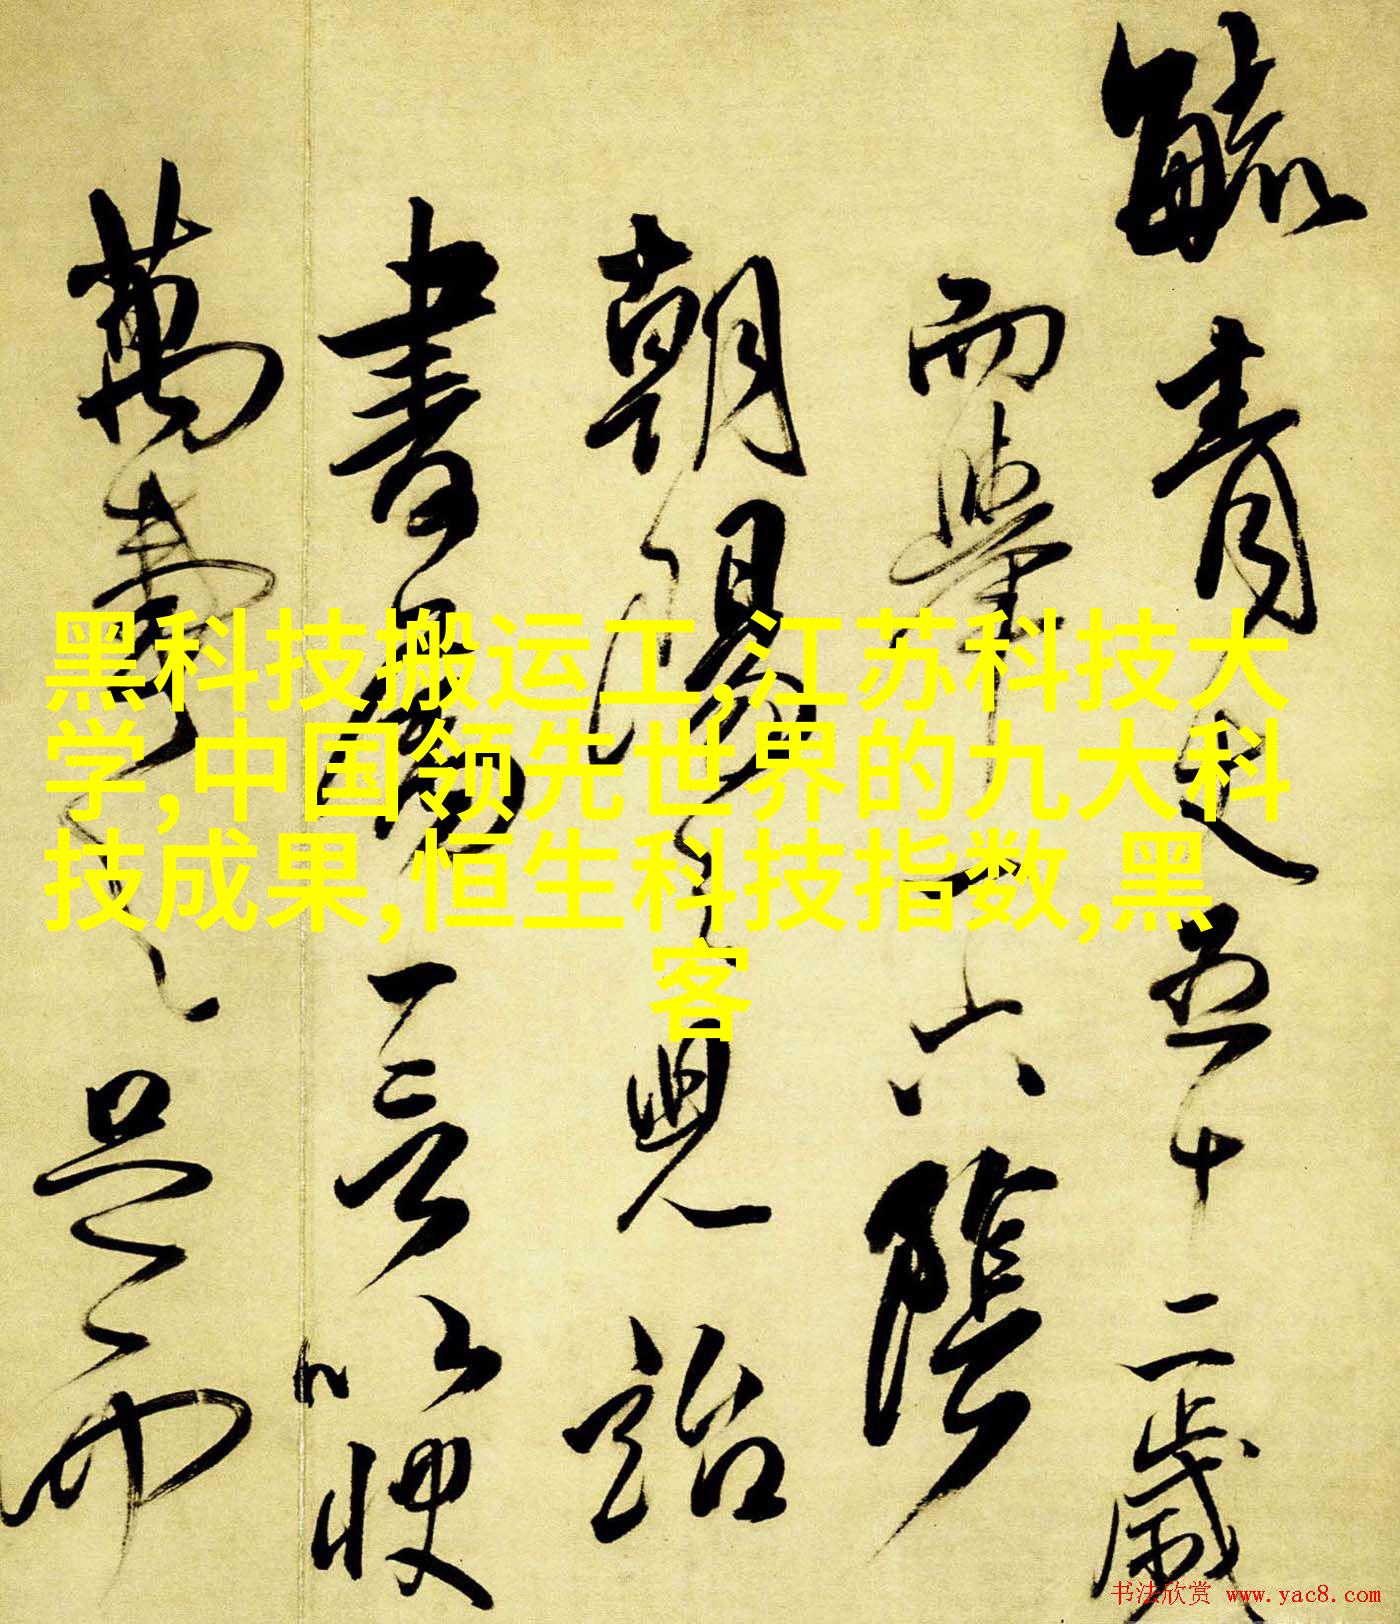 毓青史五十二歲
而舉
六陰
朝陽
見詒
書
言以
萬壽
足
黑科技搬运工,江苏科技大
学,中国领先世界的九大科
技成果,恒生科技指数,黑
客
书法欣赏 www.yac8.com